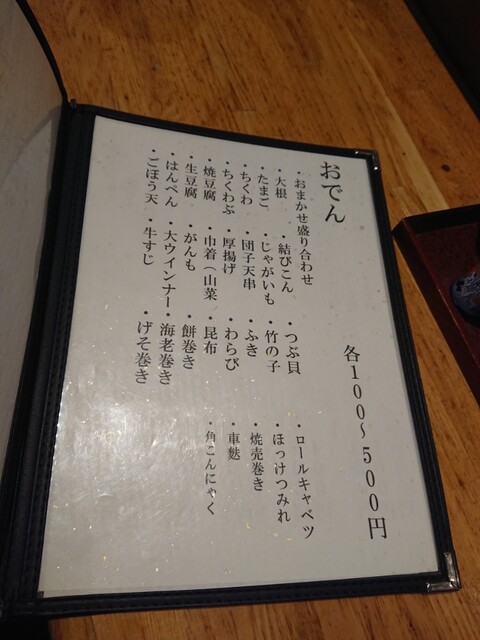 おでん
各100～500円
・おまかせ盛り合わせ
・大根 ・結びこん ・つぶ貝 ・ロールキャベツ
・たまご ・じゃがいも ・竹の子 ・ほっけつみれ
・ちくわ ・団子天串 ・ふき ・焼売巻き
・ちくわぶ ・厚揚げ ・わらび ・車麩
・焼豆腐 ・巾着（山菜 ・昆布 ・角こんにゃく
・生豆腐 ・がんも ・餅巻き
・はんぺん ・大ウインナー ・海老巻き
・ごぼう天 ・牛すじ ・げそ巻き